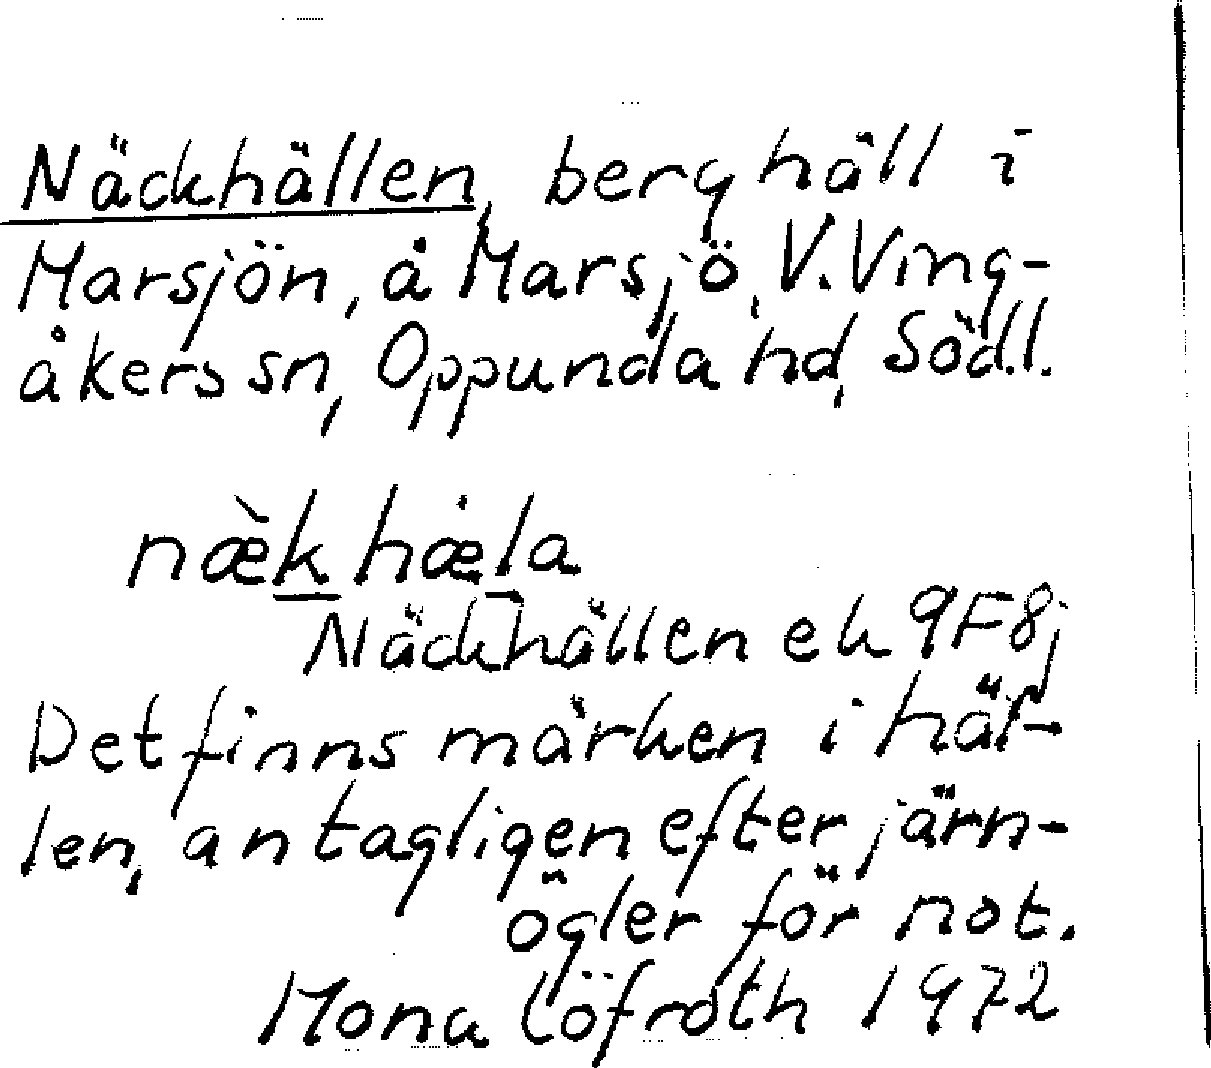 Näckhällen, berghäll i
Marsjön, å Marsjö, V. Ving-
åkers sn, Oppunda hd, Södl.
næ̀k̲hæla
Näckhällen ek 9F8j
Det finns märken i häl-
len, antagligen efter järn-
öglor för not.
Mona Löfroth 1972